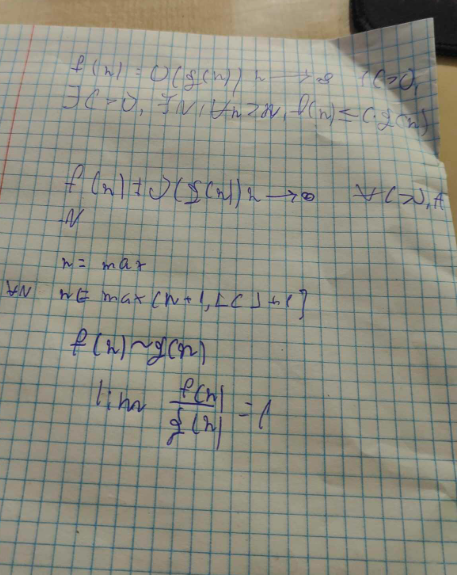 f(n) = O(g(n)) n → ∞ ∃C>0,
∃C>0, ∃N, ∀n>N, f(n) ≤ C·g(n)
f(n) ≠ O(g(n)) n → ∞ ∀C>0, ∀
N
n = max
∀N n = max(N+1, ⌊C⌋+1)
f(n) ~ g(n)
lim f(n)/g(n) = 1